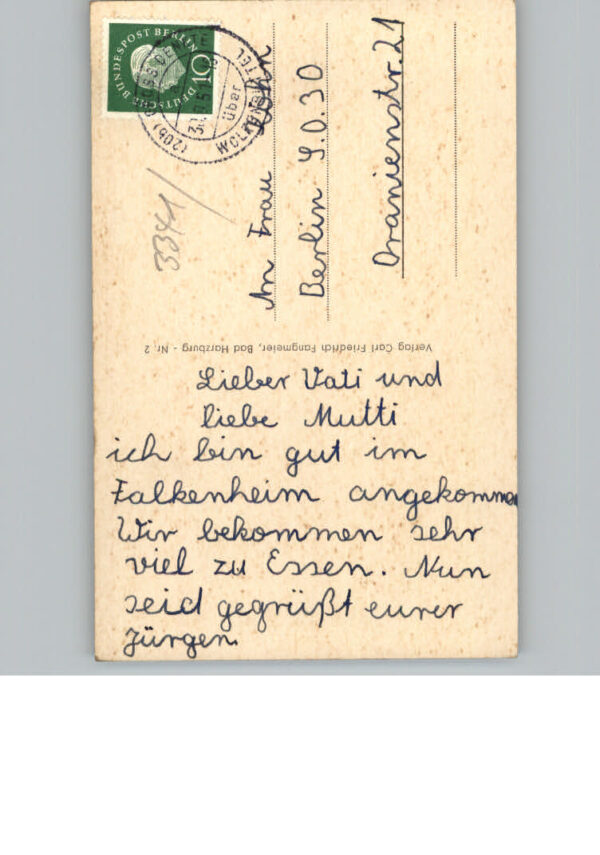 DEUTSCHE BUNDESPOST BERLIN
10
über
WOLFENBÜTTEL
3341
An Frau
Berlin S.O.30
Oranienstr. 21
Verlag Carl Friedrich Fangmeier, Bad Harzburg - Nr. 2
Lieber Vati und
liebe Mutti
ich bin gut im
Falkenheim angekommen
Wir bekommen sehr
viel zu Essen. Nun
seid gegrüßt eurer
Jürgen.